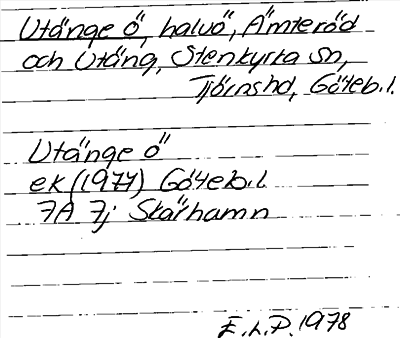 Utänge Ö, halvö, Ämteröd
och Utäng, Stenkyrka sn,
Tjörns hd, Göteb. l.
Utänge ö
ek (1977) Göteb. l.
7A 7j Skärhamn
E.L.P. 1978